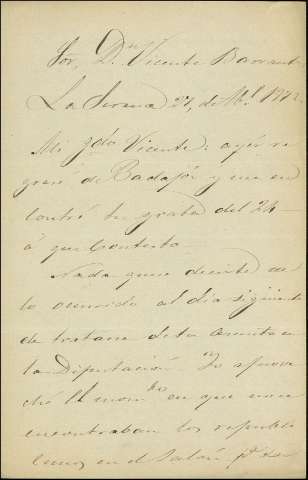 Sor. Dn. Vicente Barrantes
La Serena 27, de Ab.l 1872
Mi qdo Vicente: ayer re
gresé de Badajoz y me en
contré tu grata del 24
á que Contesto.
Nada quiero decirte de
lo ocurrido al dia siguiente
de tratarse de tu asunto en
la Diputación. Yo aprove
ché el mom.to en que nos
encontraban los republi
canos en el Salon p.a